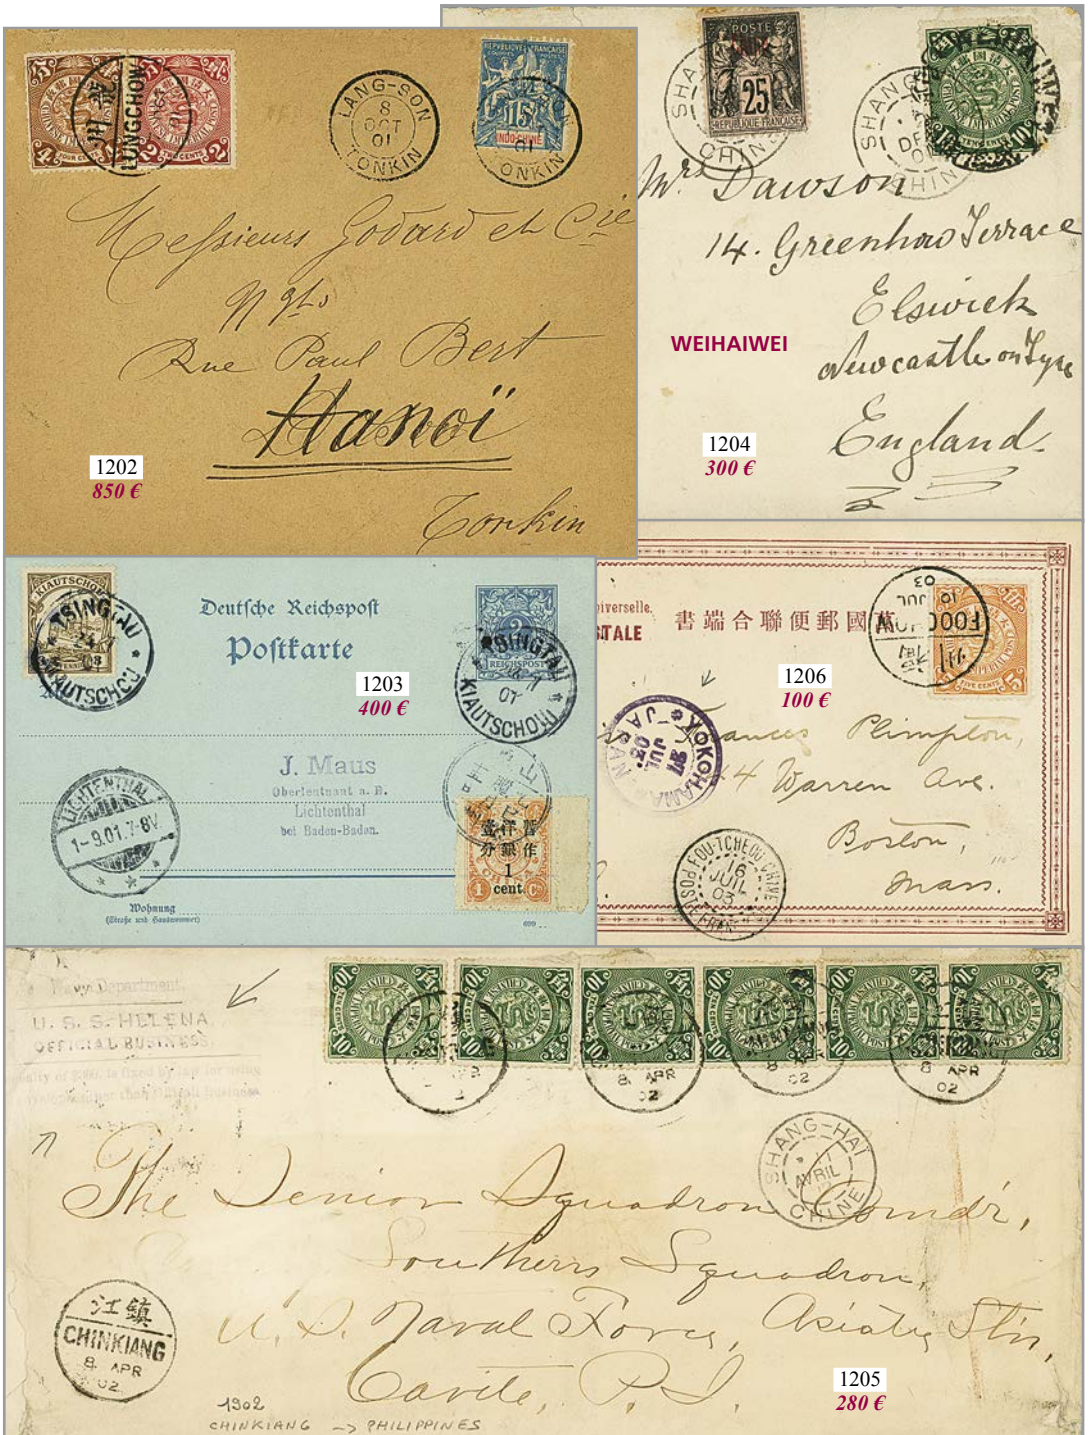 4
FOUR CENTS
LUNGCHOW
2
LANG-SON
8
OCT
01
TONKIN
REPUBLIQUE FRANÇAISE
15
INDO-CHINE
01
TONKIN
Messieurs Godard et Cie
Ngts
Rue Paul Bert
Hanoï
Tonkin
1202
850 €
POSTE
25
REPUBLIQUE FRANÇAISE
CHINE
SHANG
DEC
CHINE
WEIHAIWEI
10
Mrs Dawson
14. Greenhow Terrace
Elswick
Newcastle on Tyne
England
WEIHAIWEI
1204
300 €
KIAUTSCHOU
TSINGTAU
KIAUTSCHOU
Deutsche Reichspost
Postkarte
2
REICHSPOST
TSINGTAU
01
KIAUTSCHOU
1203
400 €
J. Maus
Oberleutnant a. D.
Lichtenthal
bei Baden-Baden.
LICHTENTHAL
1-9.01.7-8V.
暫作
洋銀
壹分
1
cent.
CHINA
Wohnung
(Straße und Hausnummer)
universelle.
STALE
書端合聯便郵國萬
FOOCHOW
16 JUL
03
FIVE CENTS
5
1206
100 €
YOKOHAMA
JUL
03
JAPAN
Frances Plimpton,
44 Warren Ave.
Boston,
Mass.
FOU-TCHEOU-CHINE
16
JUIL
03
POSTE FRANÇ
Navy Department,
U. S. S. HELENA,
OFFICIAL BUSINESS.
10
10
10
10
10
10
8 APR
02
8 APR
02
8 APR
02
SHANG-HAI
AVRIL
CHINE
The Senior Squadron Comd'r,
Southern Squadron,
U. S. Naval Force, Asiatic Stn,
Cavite, P. I.
江鎮
CHINKIANG
8 APR
02
1902
CHINKIANG -> PHILIPPINES
1205
280 €